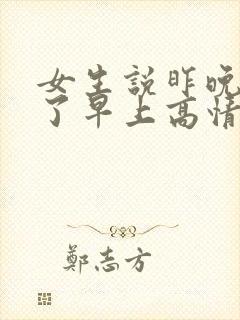 女生説昨晚
了早上高情
鄭志方